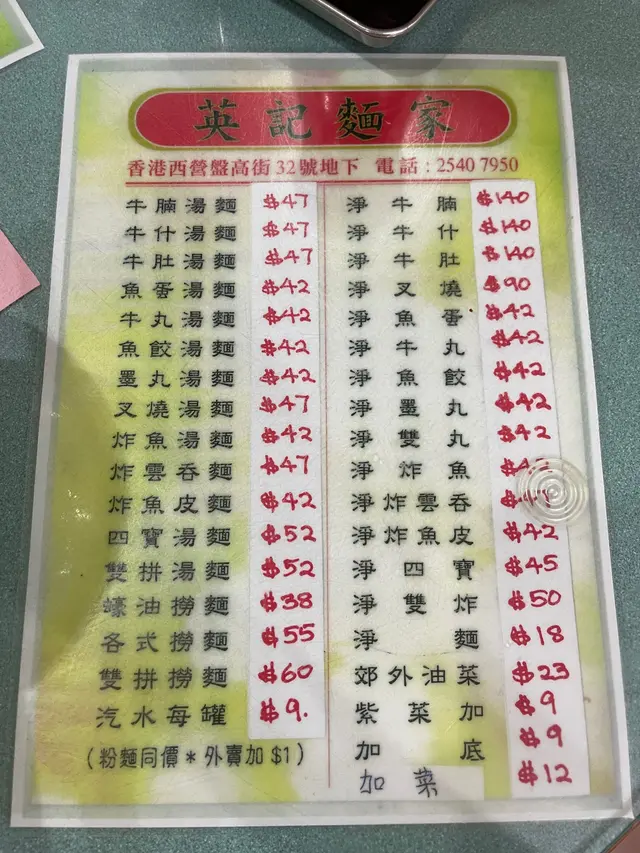 英記麵家
香港西營盤高街32號地下 電話:2540 7950
牛腩湯麵 $47
牛什湯麵 $47
牛肚湯麵 $47
魚蛋湯麵 $42
牛丸湯麵 $42
魚餃湯麵 $42
墨丸湯麵 $42
叉燒湯麵 $47
炸魚湯麵 $42
炸雲吞麵 $47
炸魚皮麵 $42
四寶湯麵 $52
雙拼湯麵 $52
蠔油撈麵 $38
各式撈麵 $55
雙拼撈麵 $60
汽水每罐 $9.
(粉麵同價*外賣加 $1)
淨牛腩 $140
淨牛什 $140
淨牛肚 $140
淨叉燒 $90
淨魚蛋 $42
淨牛丸 $42
淨魚餃 $42
淨墨丸 $42
淨雙丸 $42
淨炸魚
淨炸雲吞
淨炸魚皮 $42
淨四寶 $45
淨雙炸 $50
淨麵 $18
郊外油菜 $23
紫菜加 $9
加底 $9
加菜 $12